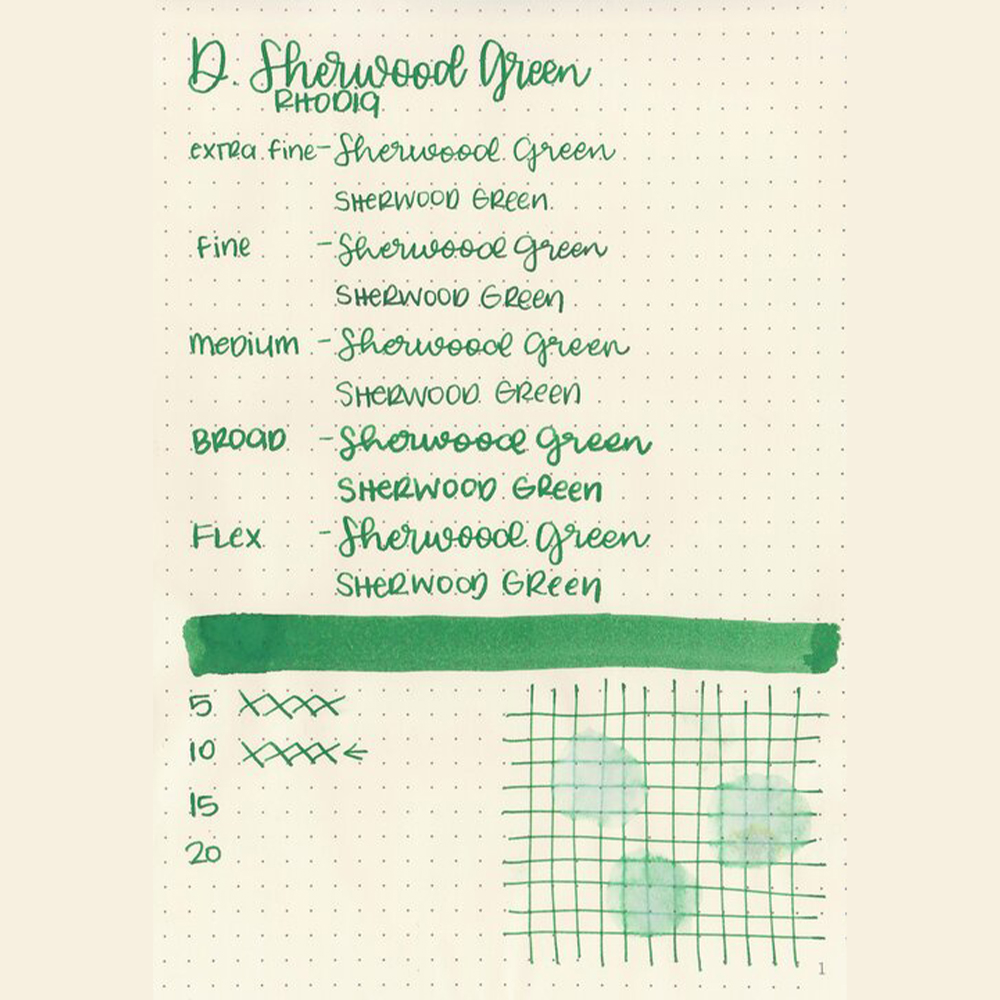 D. Sherwood Green
RHODIA
extra fine - Sherwood Green
SHERWOOD GREEN
Fine - Sherwood Green
SHERWOOD GREEN
Medium - Sherwood Green
SHERWOOD GREEN
BROAD - Sherwood Green
SHERWOOD GREEN
FLEX - Sherwood Green
SHERWOOD GREEN
5 XXXX
10 XXXX←
15
20
1